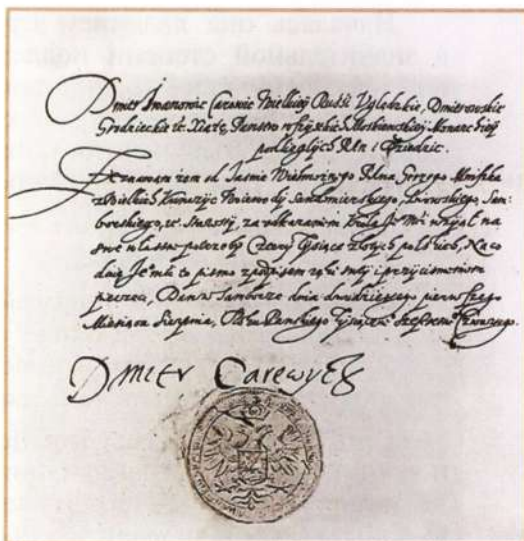 Dmitr Iwanowic Carewic Wielkiey Russi Uglickie, Dmitrowskie
Grodzieckie etc Xiążę, Państw wszystkich Moskiewskiey Monarchiey
podległych Pan i Dziedzic.
Zeznawam żem od Jaśnie Wielmożnego Pana Mniszka
z Wielkich Kunczyc Woiewody Sandomierskiego, Lwowskiego Sam-
borskiego, etc Starosty, za Króla Je Mci na
swe własne potrzeby Cztery Tysiące złotych polskich, Na co
daię Je mci to pismo z podpisem ręki swey i przyciśnieniem
pieczęci, Dan w Samborze dnia dwudziestego pierwszego
Miesiąca Sierpnia, Roku Pańskiego Tysiącz. Czwartego.
Dmitr Carewycz